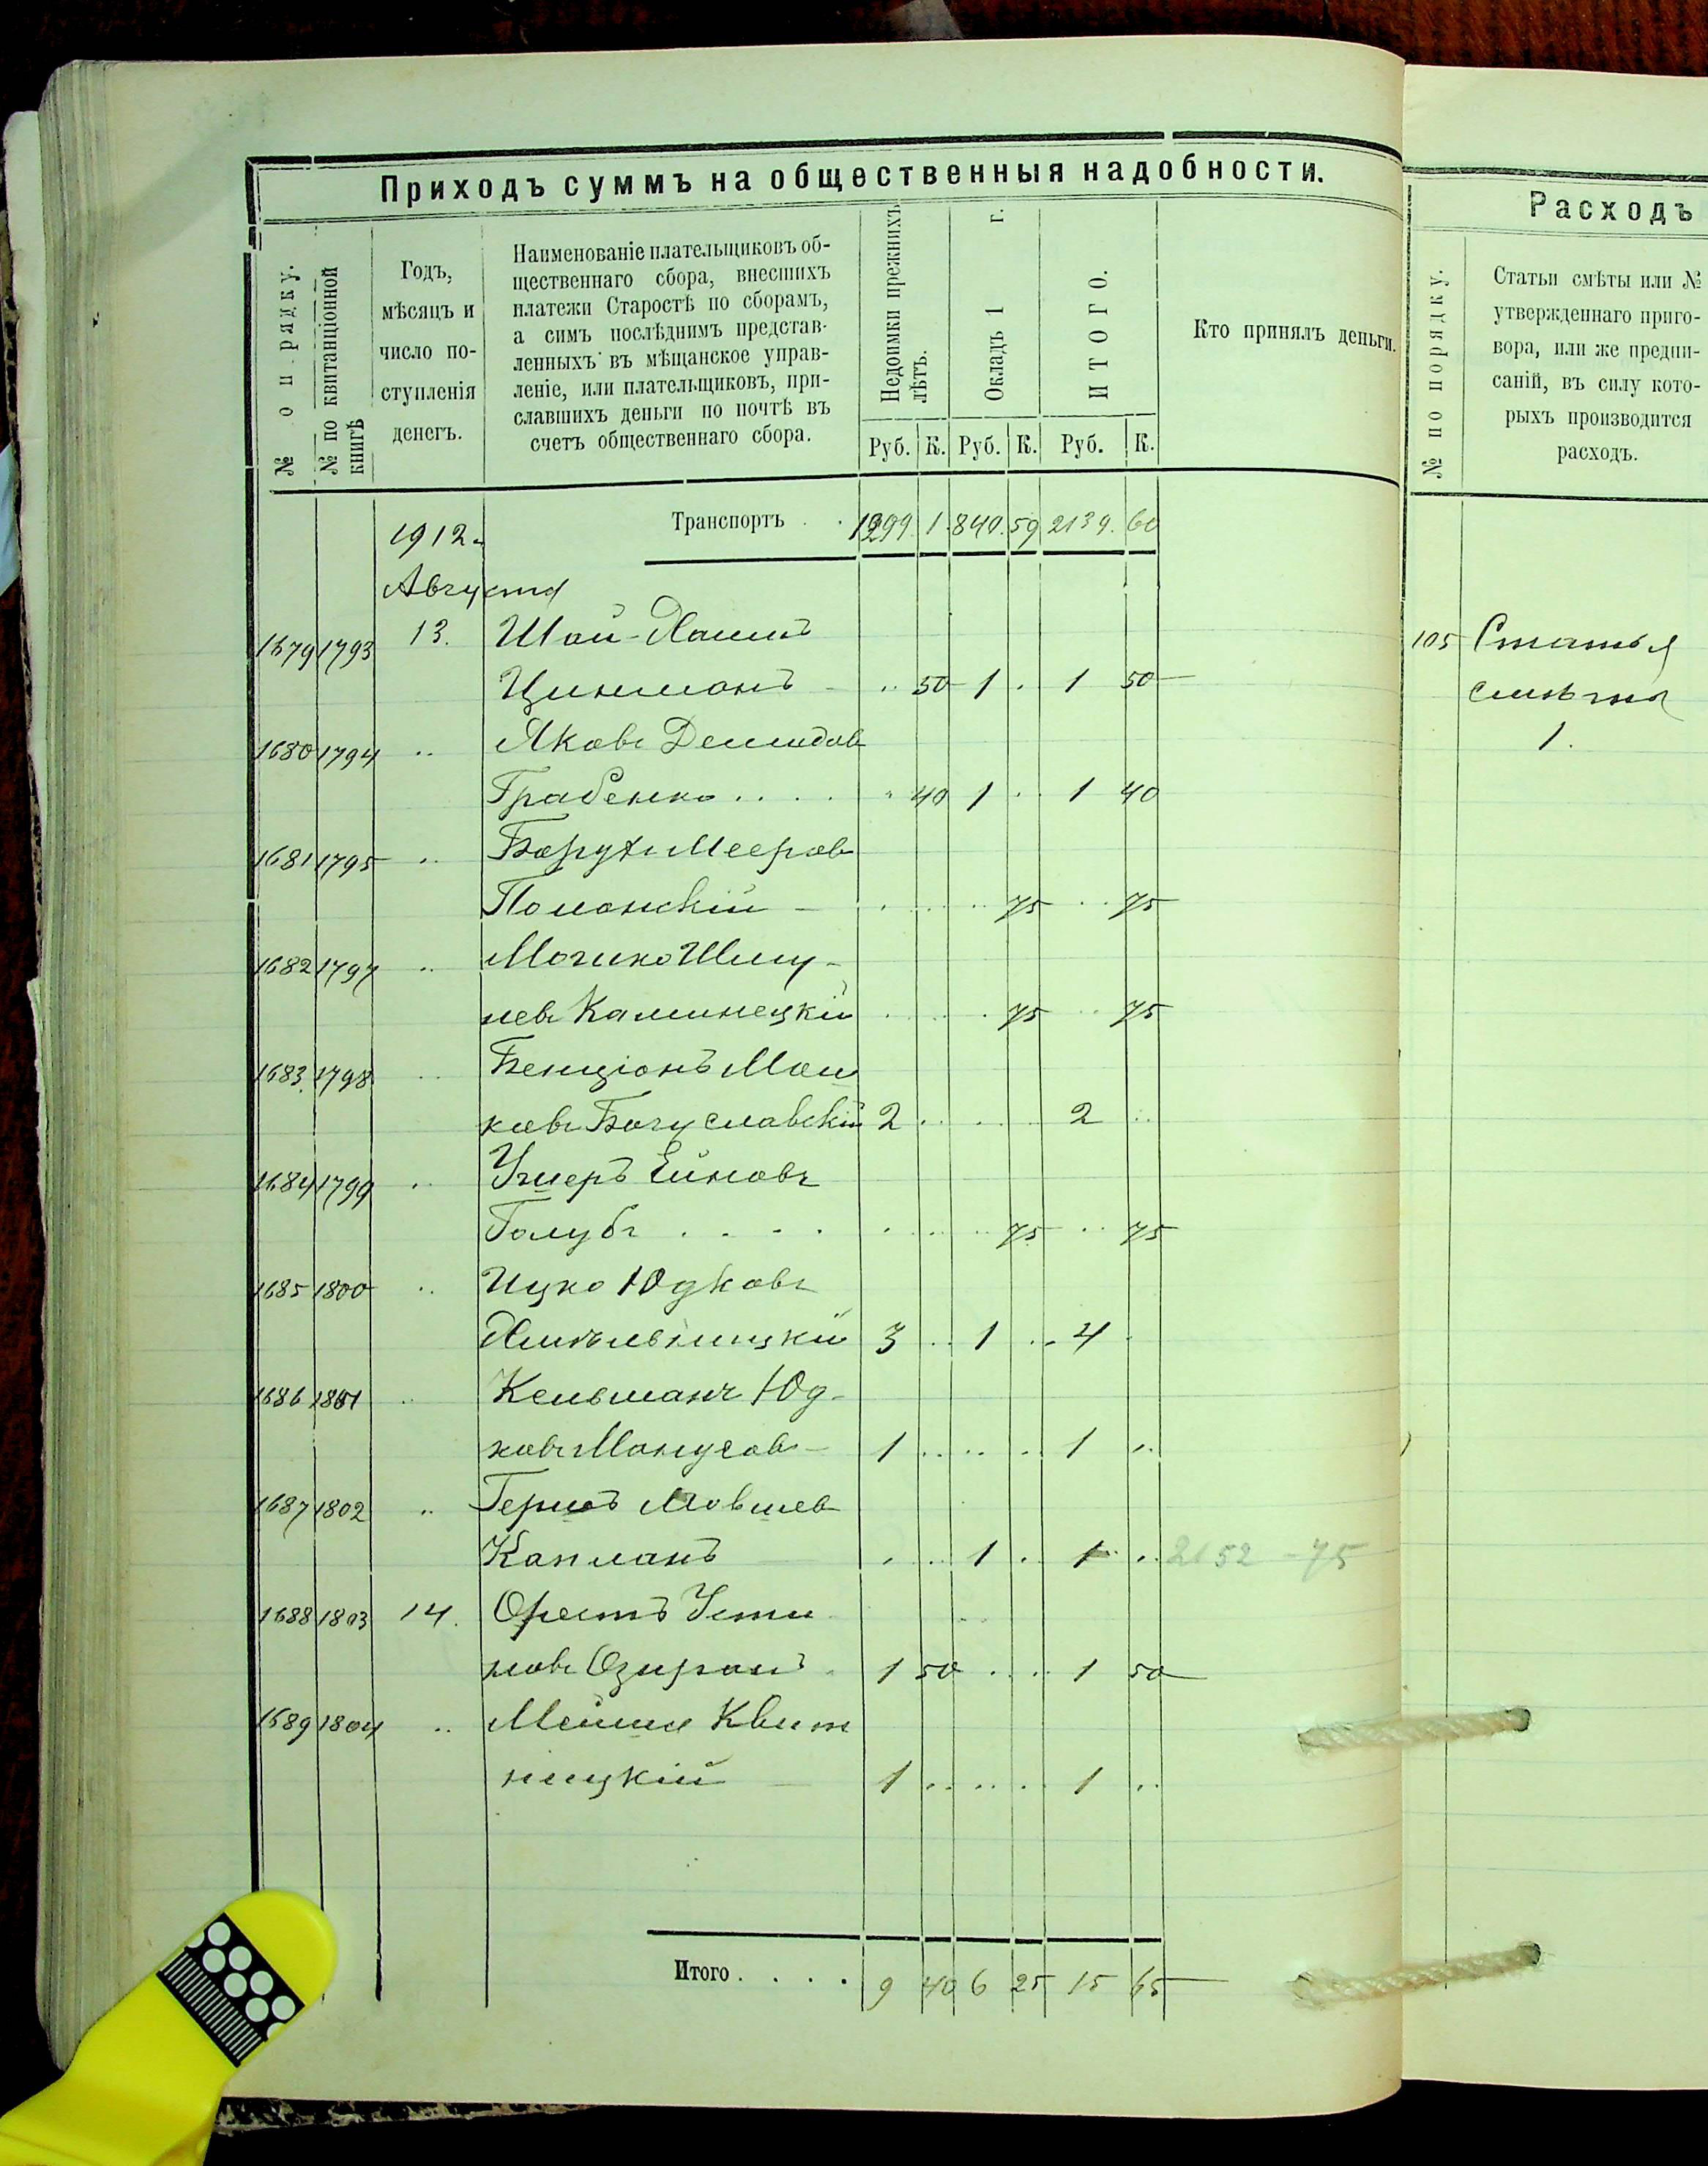 Приходъ суммъ на общественныя надобности.
№ по рядку.
№ по квитанціонной книгѣ
Годъ,
мѣсяцъ и
число по-
ступленія
денегъ.
Наименованіе плательщиковъ об-
щественнаго сбора, внесшихъ
платежи Старостѣ по сборамъ,
а симъ послѣднимъ представ-
ленныхъ въ мѣщанское управ-
леніе, или плательщиковъ, при-
славшихъ деньги по почтѣ въ
счетъ общественнаго сбора.
Недоимки прежнихъ лѣтъ.
Окладъ 1 г.
ИТОГО.
Кто принялъ деньги.
Руб. К. Руб. К. Руб. К.
Транспортъ . . 1299. 1. 840. 59 2139. 60
1912 г.
Августа
1679 1793 13. Шая-Хаимъ
Цинманъ - .. 50 1 . 1 50
1680 1794 .. Яковъ Демидов
Грабенко . . . . " 40 1 .. 1 40
1681 1795 .. Борухъ Мееров
Полонскій - . . . . 75 .. 75
1682 1797 .. Мошко Шму-
левъ Каминецкій . . . . 75 .. 75
1683. 1798 .. Бенціонъ Мош
ковъ Богуславскій 2 . . . . 2 ..
1684 1799 .. Ушеръ Ейновъ
Голубъ . . . . . . . . 75 .. 75
1685 1800 .. Ицко Юдковъ
Хмѣльницкій 3 .. 1 .. 4
1686 1801 .. Кельманъ Юд-
ковъ Монусов - 1 . . . . 1 ..
1687 1802 .. Гершъ Мовшев
Капланъ . . . 1 . 1 .. 2152 - 75
1688 1803 14. Орестъ Усти
новъ Озиранъ 1 50 . . . 1 50
1689 1804 .. Мейша Квит
ницкій 1 . . . . . 1 ..
Итого . . . . 9 40 6 25 15 65
Расходъ
№ по порядку.
Статьи смѣты или №
утвержденнаго приго-
вора, или же предпи-
саній, въ силу кото-
рыхъ производится
расходъ.
105 Статья
смѣты
1.